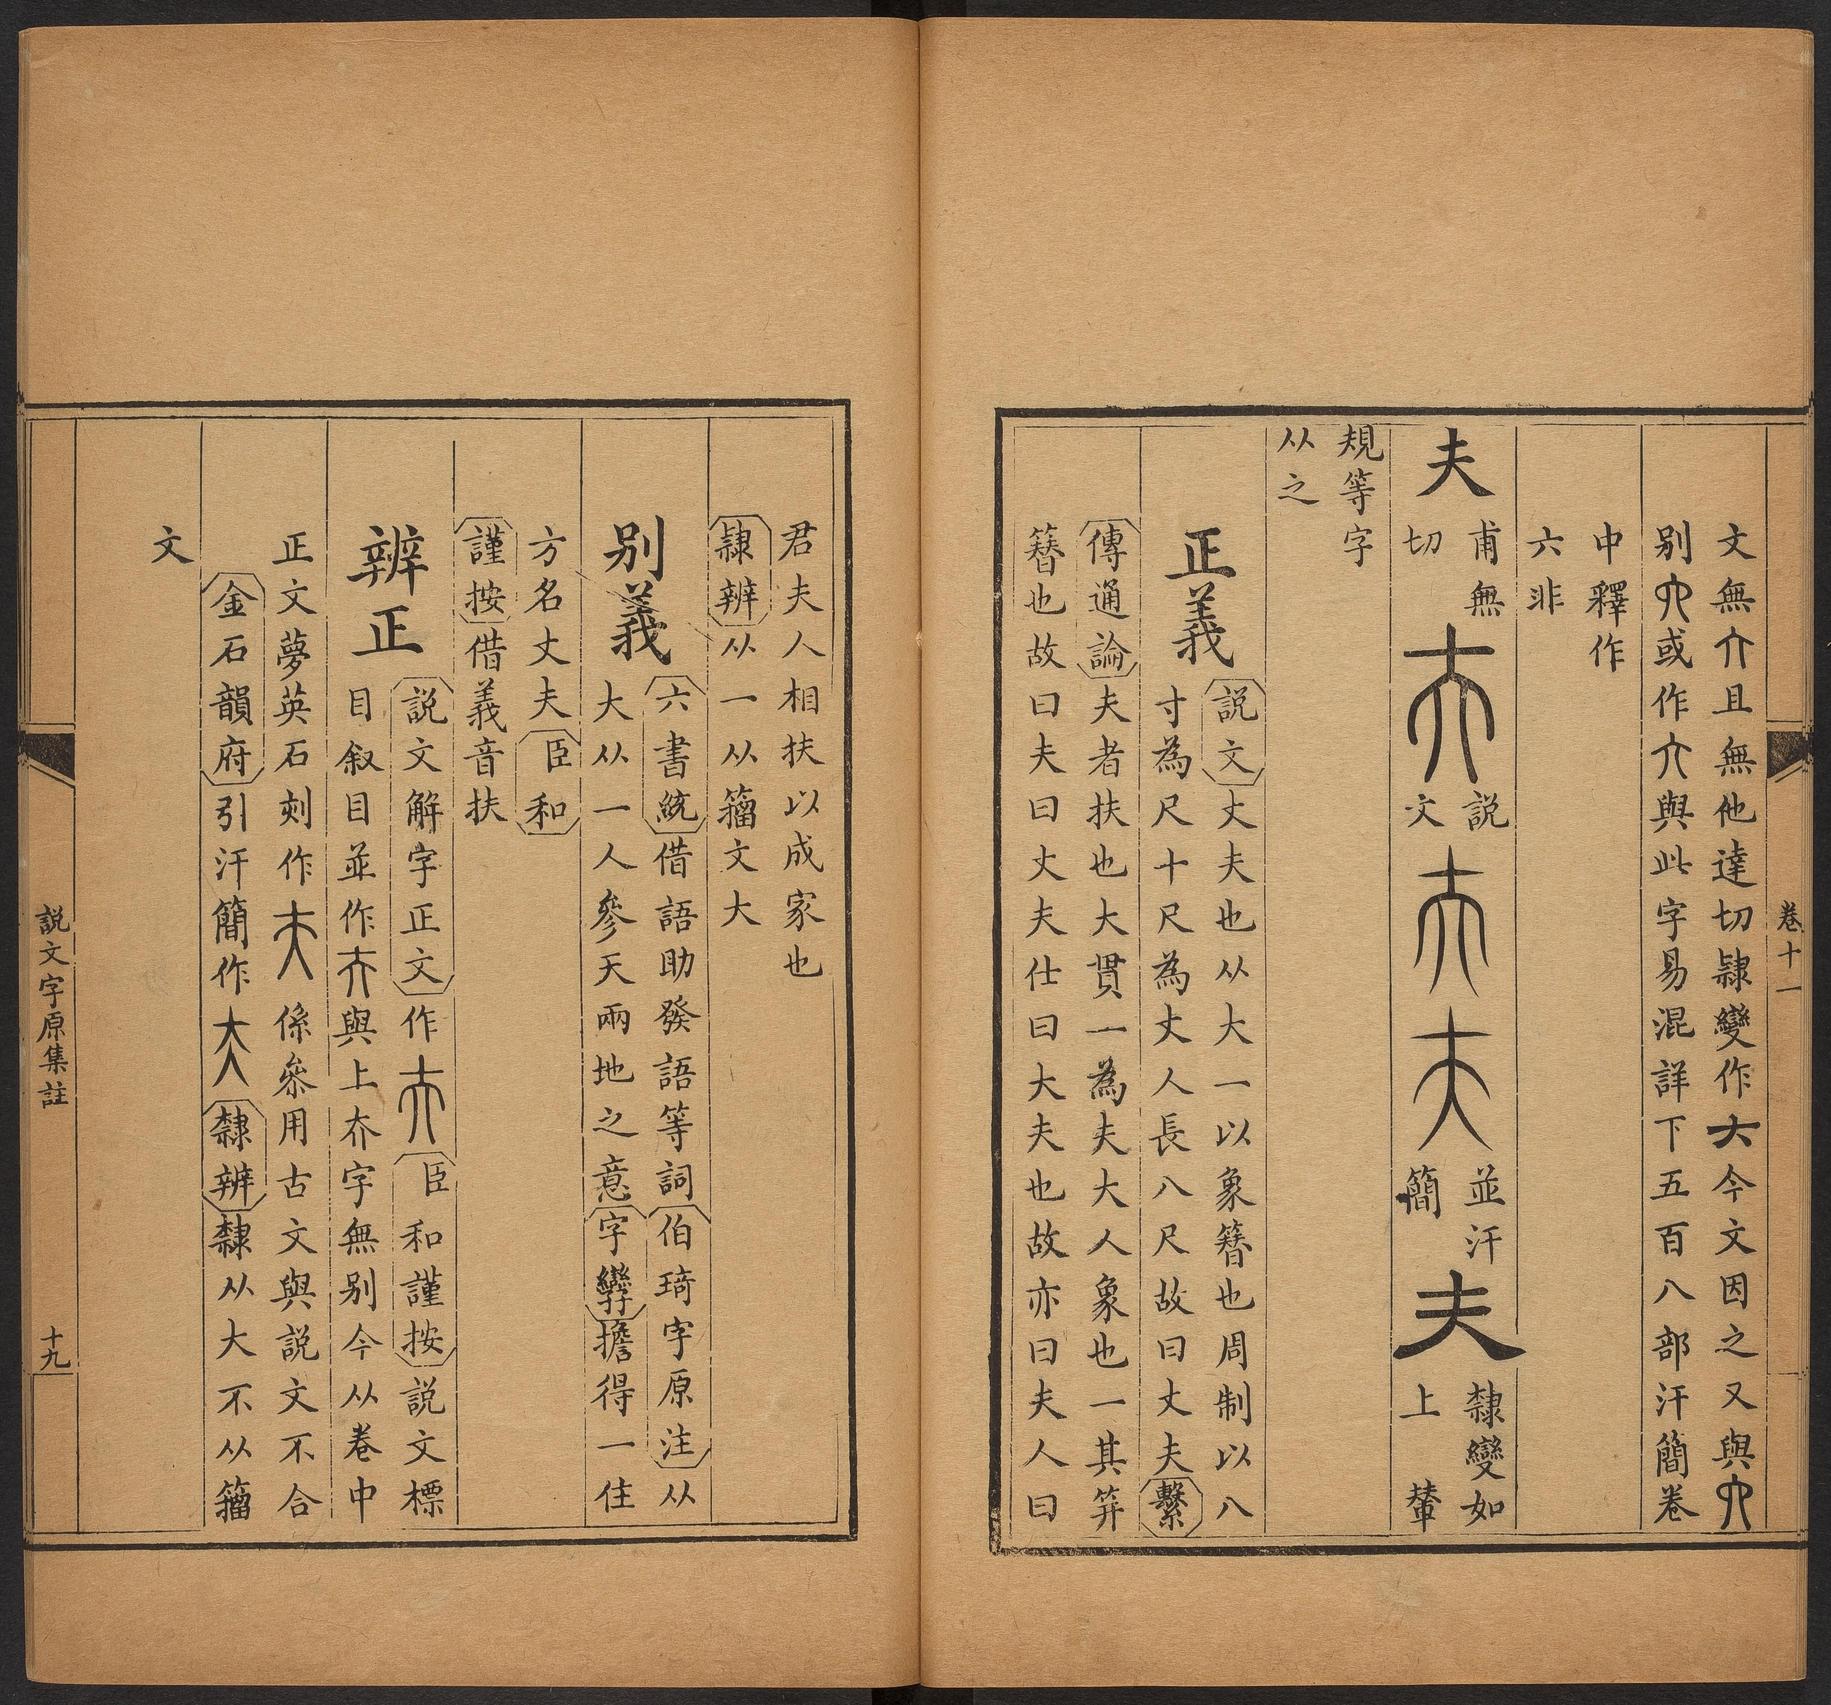 卷十一
文無亣且無他達切隷變作大今文因之又與
别或作亣與此字易混詳下五百八部汗簡卷
中釋作
六非
夫
甫無
切
説
文
並汗
簡
夫
隸變如
上 輦
規等字
从之
正義
説文丈夫也从大一以象簪也周制以八
寸為尺十尺為丈人長八尺故曰丈夫繫
傳通論夫者扶也大貫一為夫大人象也一其笄
簪也故曰夫曰丈夫仕曰大夫也故亦曰夫人曰
君夫人相扶以成家也
隷辨从一从籀文大
别義
六書統借語助發語等詞伯琦字原注从
大从一人參天兩地之意字孿擔得一住
方名丈夫臣和
謹按借義音扶
辨正
説文解字正文作臣和謹按説文標
目叙目並作與上夰字無别今从卷中
正文夢英石刻作係叅用古文與説文不合
金石韻府引汗簡作隸辨隸从大不从籀
文
説文字原集註
十九